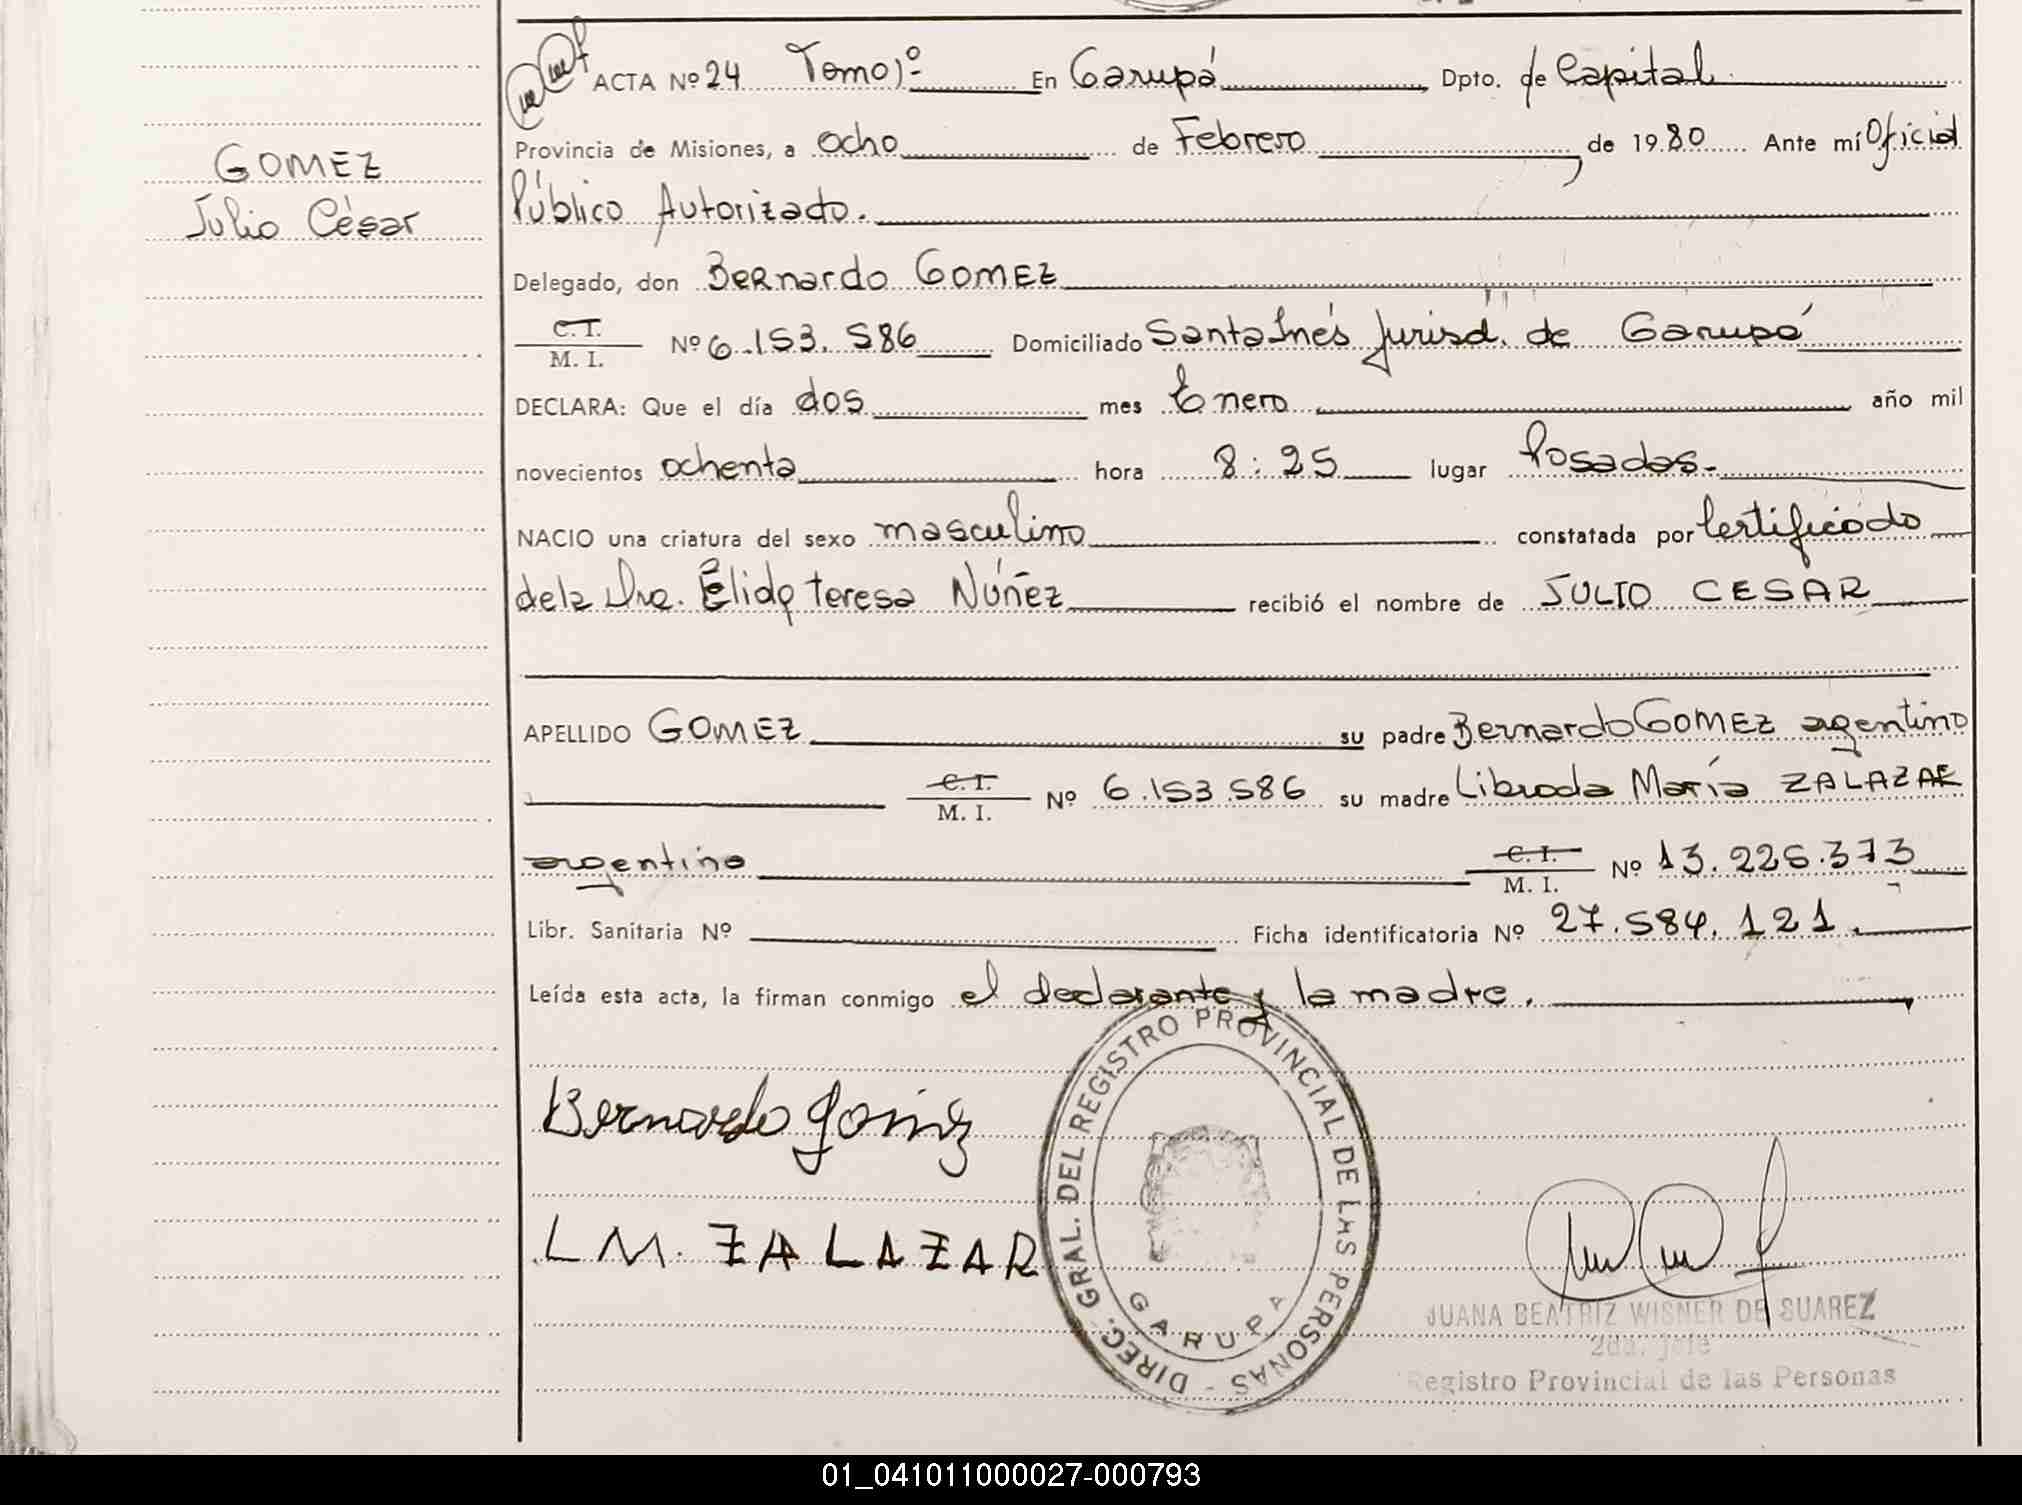 ACTA Nº 24 Tomo 1º En Garupá Dpto. de Capital
Provincia de Misiones, a ocho de Febrero de 1980 Ante mí Oficial
Público Autorizado.
GOMEZ
Julio César
Delegado, don Bernardo GOMEZ
C.I.
M. I. Nº 6.153.586 Domiciliado Santa Inés Jurisd. de Garupá
DECLARA: Que el día dos mes Enero año mil
novecientos ochenta hora 8:25 lugar Posadas.-
NACIO una criatura del sexo masculino constatada por Certificado
de la Dra. Élida Teresa Núñez recibió el nombre de JULIO CESAR
APELLIDO GOMEZ su padre Bernardo GOMEZ argentino
C.I.
M. I. Nº 6.153.586 su madre Librada María ZALAZAR
argentina C.I.
M. I. Nº 13.226.373
Libr. Sanitaria Nº Ficha identificatoria Nº 27.584.121.
Leída esta acta, la firman conmigo el declarante y la madre.
Bernardo Gomez
L M. ZALAZAR
DIREC. GRAL. DEL REGISTRO PROVINCIAL DE LAS PERSONAS -
GARUPA
JUANA BEATRIZ WISNER DE SUAREZ
2da. Jefe
Registro Provincial de las Personas
01_041011000027-000793